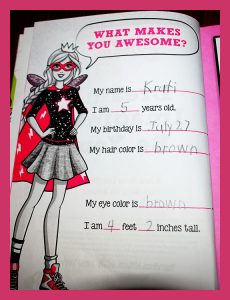 WHAT MAKES
YOU AWESOME?
My name is Kruti
I am 5 years old.
My birthday is July 27
My hair color is brown
My eye color is brown
I am 4 feet 2 inches tall.